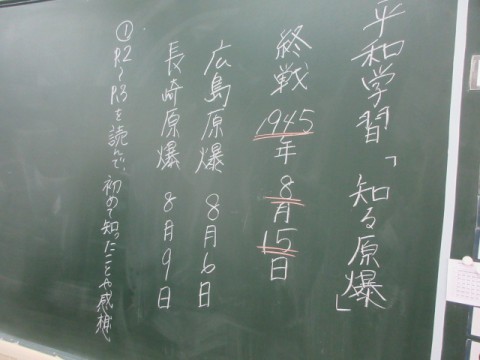 平和学習「知る原爆」
終戦 1945年 8月15日
広島原爆 8月6日
長崎原爆 8月9日
①P2~P3を読んで、初めて知ったことや感想